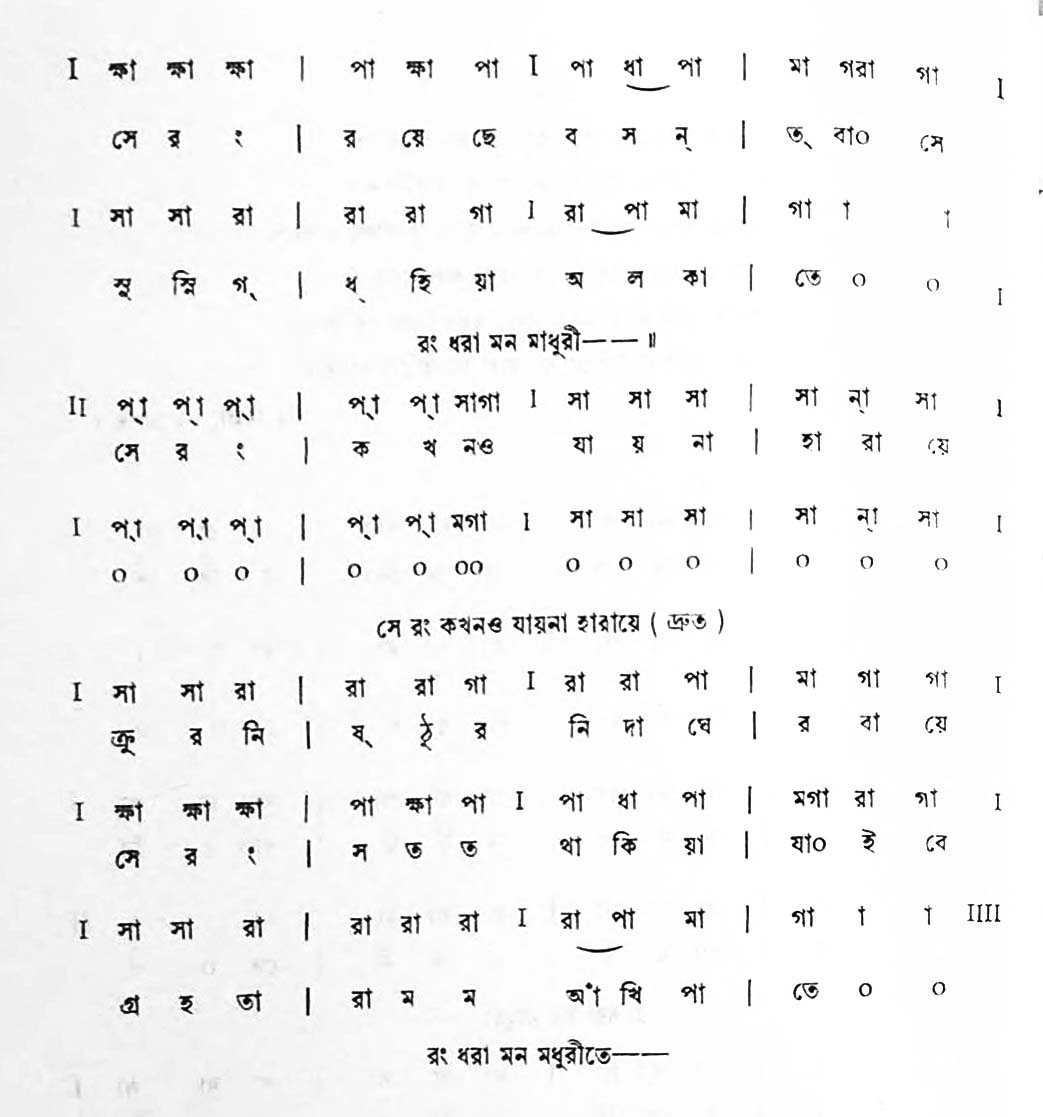 I ক্ষা ক্ষা ক্ষা | পা ক্ষা পা I পা ধা পা | মা গরা গা I
সে র ং | র য়ে ছে ব স ন্ | ত্ বা০ সে
I সা সা রা | রা রা গা I রা পা মা | গা া া
সু স্নি গ্ | ধ্ হি য়া অ ল কা | তে ০ ০ I
রং ধরা মন মাধুরী—— ॥
II প্া প্া প্া | প্া প্া সাগা I সা সা সা | সা ন্া সা I
সে র ং | ক খ নও যা য় না | হা রা য়ে
I প্া প্া প্া | প্া প্া মগা I সা সা সা | সা ন্া সা I
০ ০ ০ | ০ ০ ০০ ০ ০ ০ | ০ ০ ০
সে রং কখনও যায়না হারায়ে ( দ্রুত )
I সা সা রা | রা রা গা I রা রা পা | মা গা গা I
ক্রু র নি | ষ্ ঠু র নি দা ঘে | র বা য়ে
I ক্ষা ক্ষা ক্ষা | পা ক্ষা পা I পা ধা পা | মগা রা গা I
সে র ং | স ত ত থা কি য়া | যা০ ই বে
I সা সা রা | রা রা রা I রা পা মা | গা া া IIII
গ্র হ তা | রা ম ম আঁ খি পা | তে ০ ০
রং ধরা মন মধুরীতে——